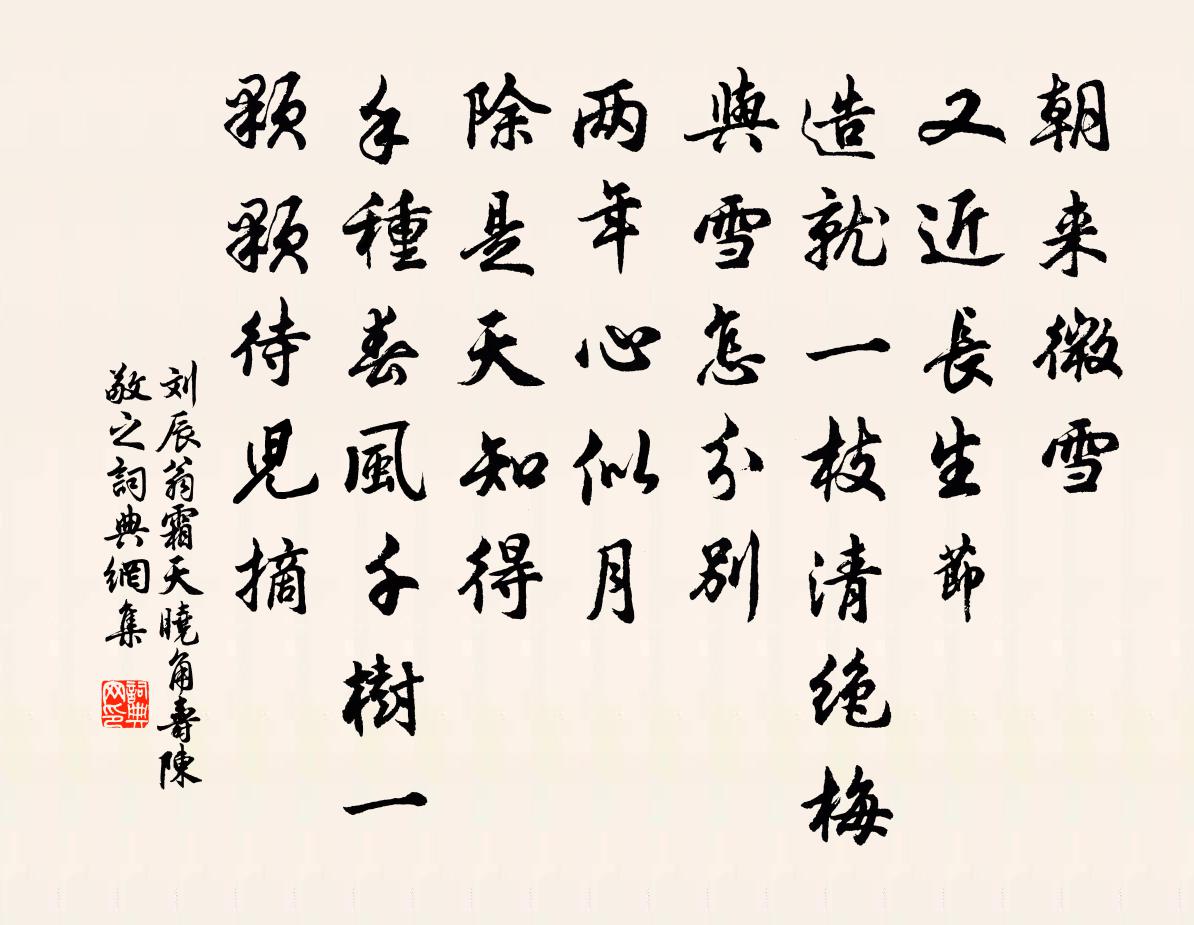 朝来微雪
又近長生節
造就一枝清绝梅
與雪怎分别
两年心似月
除是天知得
手種春風千樹一
顆顆待児摘
刘辰翁霜天曉角壽陳
敬之詞典網集
詞典
网印